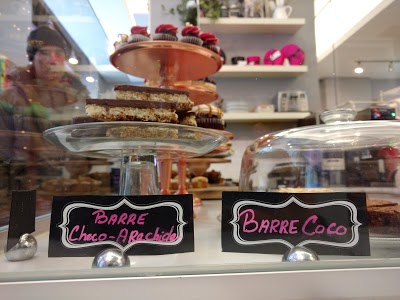 BARRE
Choco-ARachide
BARRE COCO